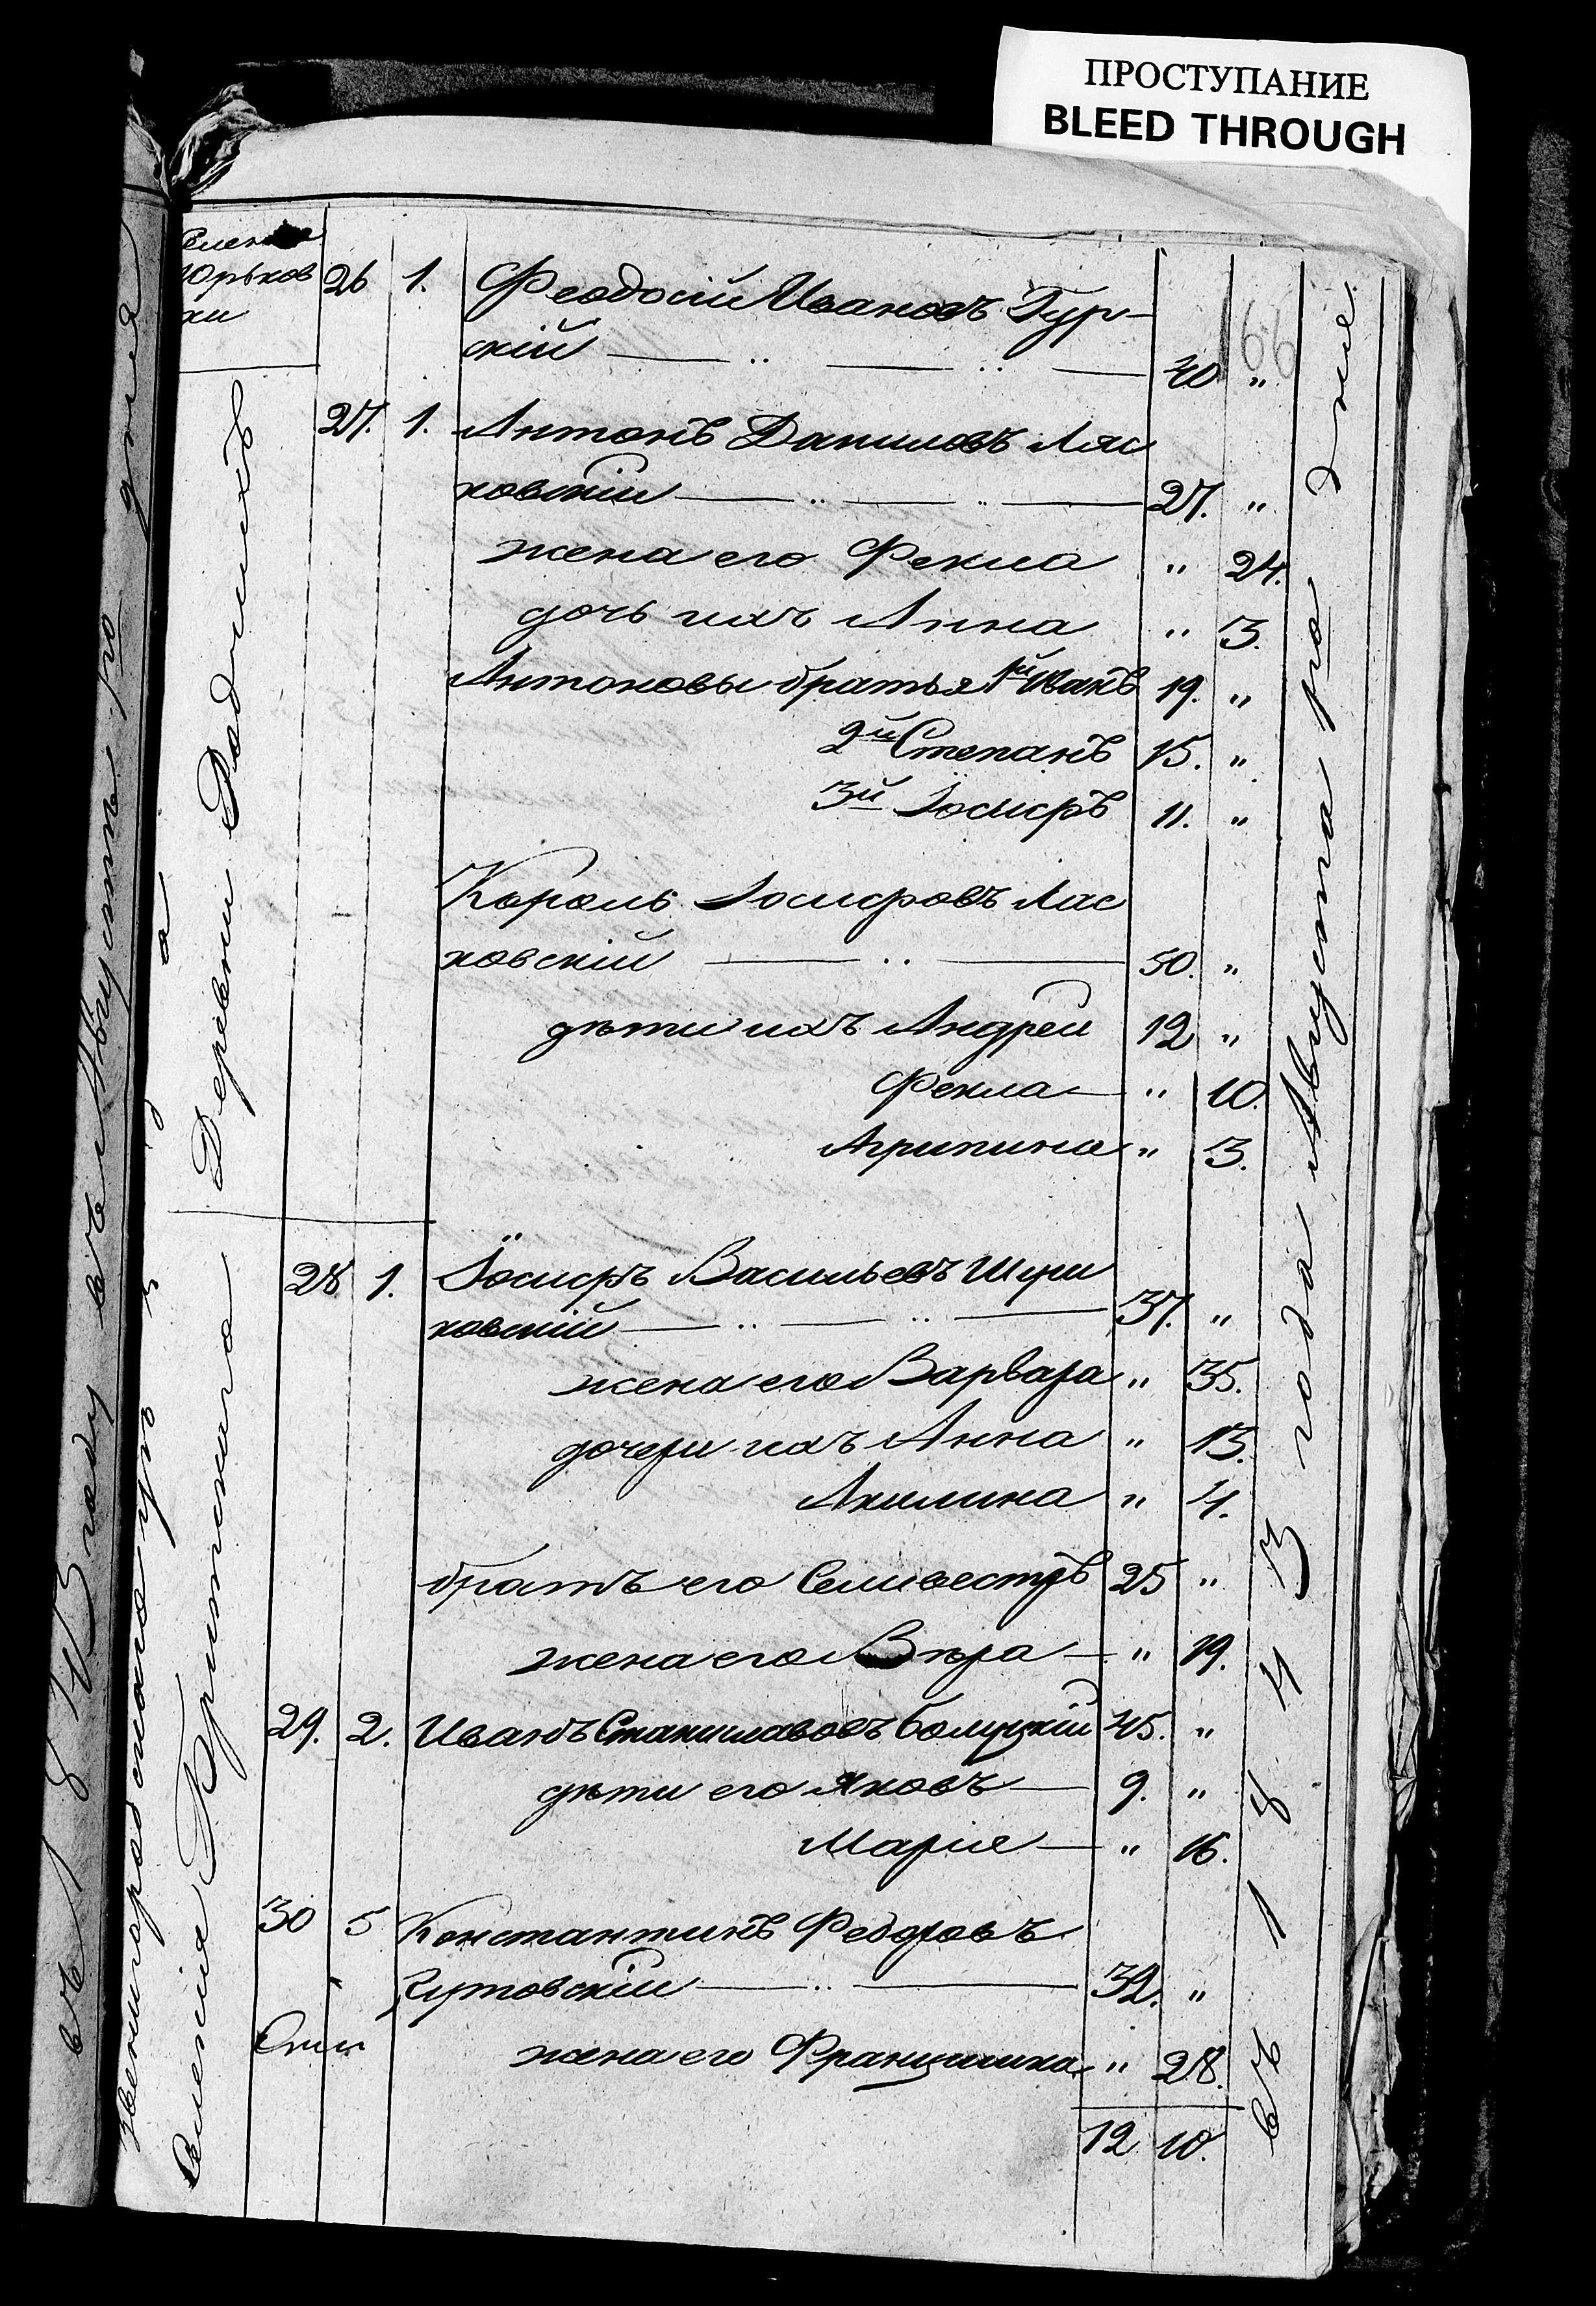 ПРОСТУПАНИЕ
BLEED THROUGH
166
Селенія
Юрьков
ки
26 1. Феодосій Ивановъ Гур-
скій 40 "
Деревни
27. 1. Антонъ Даниловъ Ляс
ковскій 27. "
жена его Фекла " 24.
дочь ихъ Анна " 3.
Антоновы братья 1й Иванъ 19. "
2й Степанъ 15. "
3й Іосифъ 11. "
Король Іосифовъ Ляс
ковскій 50. "
дѣти ихъ Андрей 12 "
Фекла " 10.
Агрипина " 3.
Селенія
28 1. Іосифъ Васильевъ
ковскій 37. "
жена его Варвара " 35.
дочери ихъ Анна " 13.
Акилина " 4.
братъ его Селивестръ 25 "
жена его Вѣра " 19.
29. 2. Иванъ Станиславовъ 45. "
дѣти его Яковъ 9. "
Марія " 16.
30 5 Константинъ Федоровъ
Кутовскій 32. "
жена его Францишка " 28.
12 10.
въ 1843 года Августа 1го дня.
въ 1843 году въ Августа 1го дня